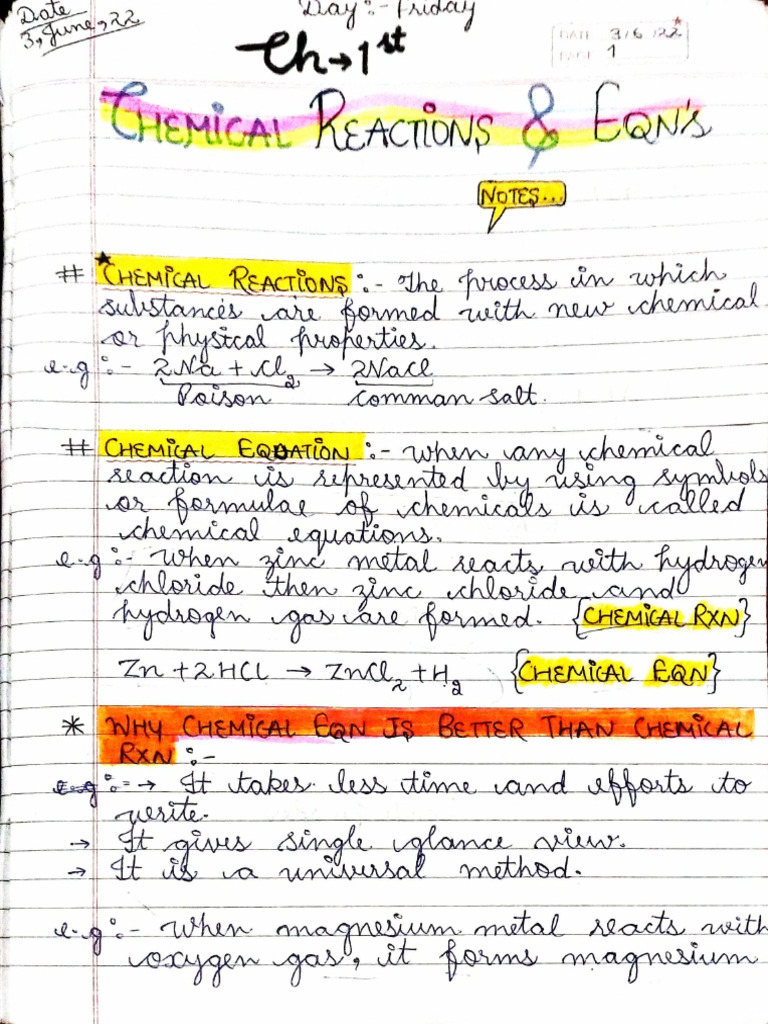 Date
3, June, 22
Day:- Friday
DATE 3/6/22
PAGE 1
Ch→1st
CHEMICAL REACTIONS & EQN's
NOTES...
# ★CHEMICAL REACTIONS:- The process in which
substances are formed with new chemical
or physical properties.
e.g:- 2Na + Cl₂ → 2NaCl
Poison comman salt.
# CHEMICAL EQUATION:- when any chemical
reaction is represented by using symbols
or formulae of chemicals is called
chemical equations.
e.g:- when zinc metal reacts with hydrogen
chloride then zinc chloride and
hydrogen gas are formed. {CHEMICAL RXN}
Zn + 2HCl → ZnCl₂ + H₂ {CHEMICAL EQN}
* WHY CHEMICAL EQN IS BETTER THAN CHEMICAL
RXN:-
e.g:- → It takes less time and efforts to
write.
→ It gives single glance view.
→ It is a universal method.
e.g:- when magnesium metal reacts with
oxygen gas, it forms magnesium